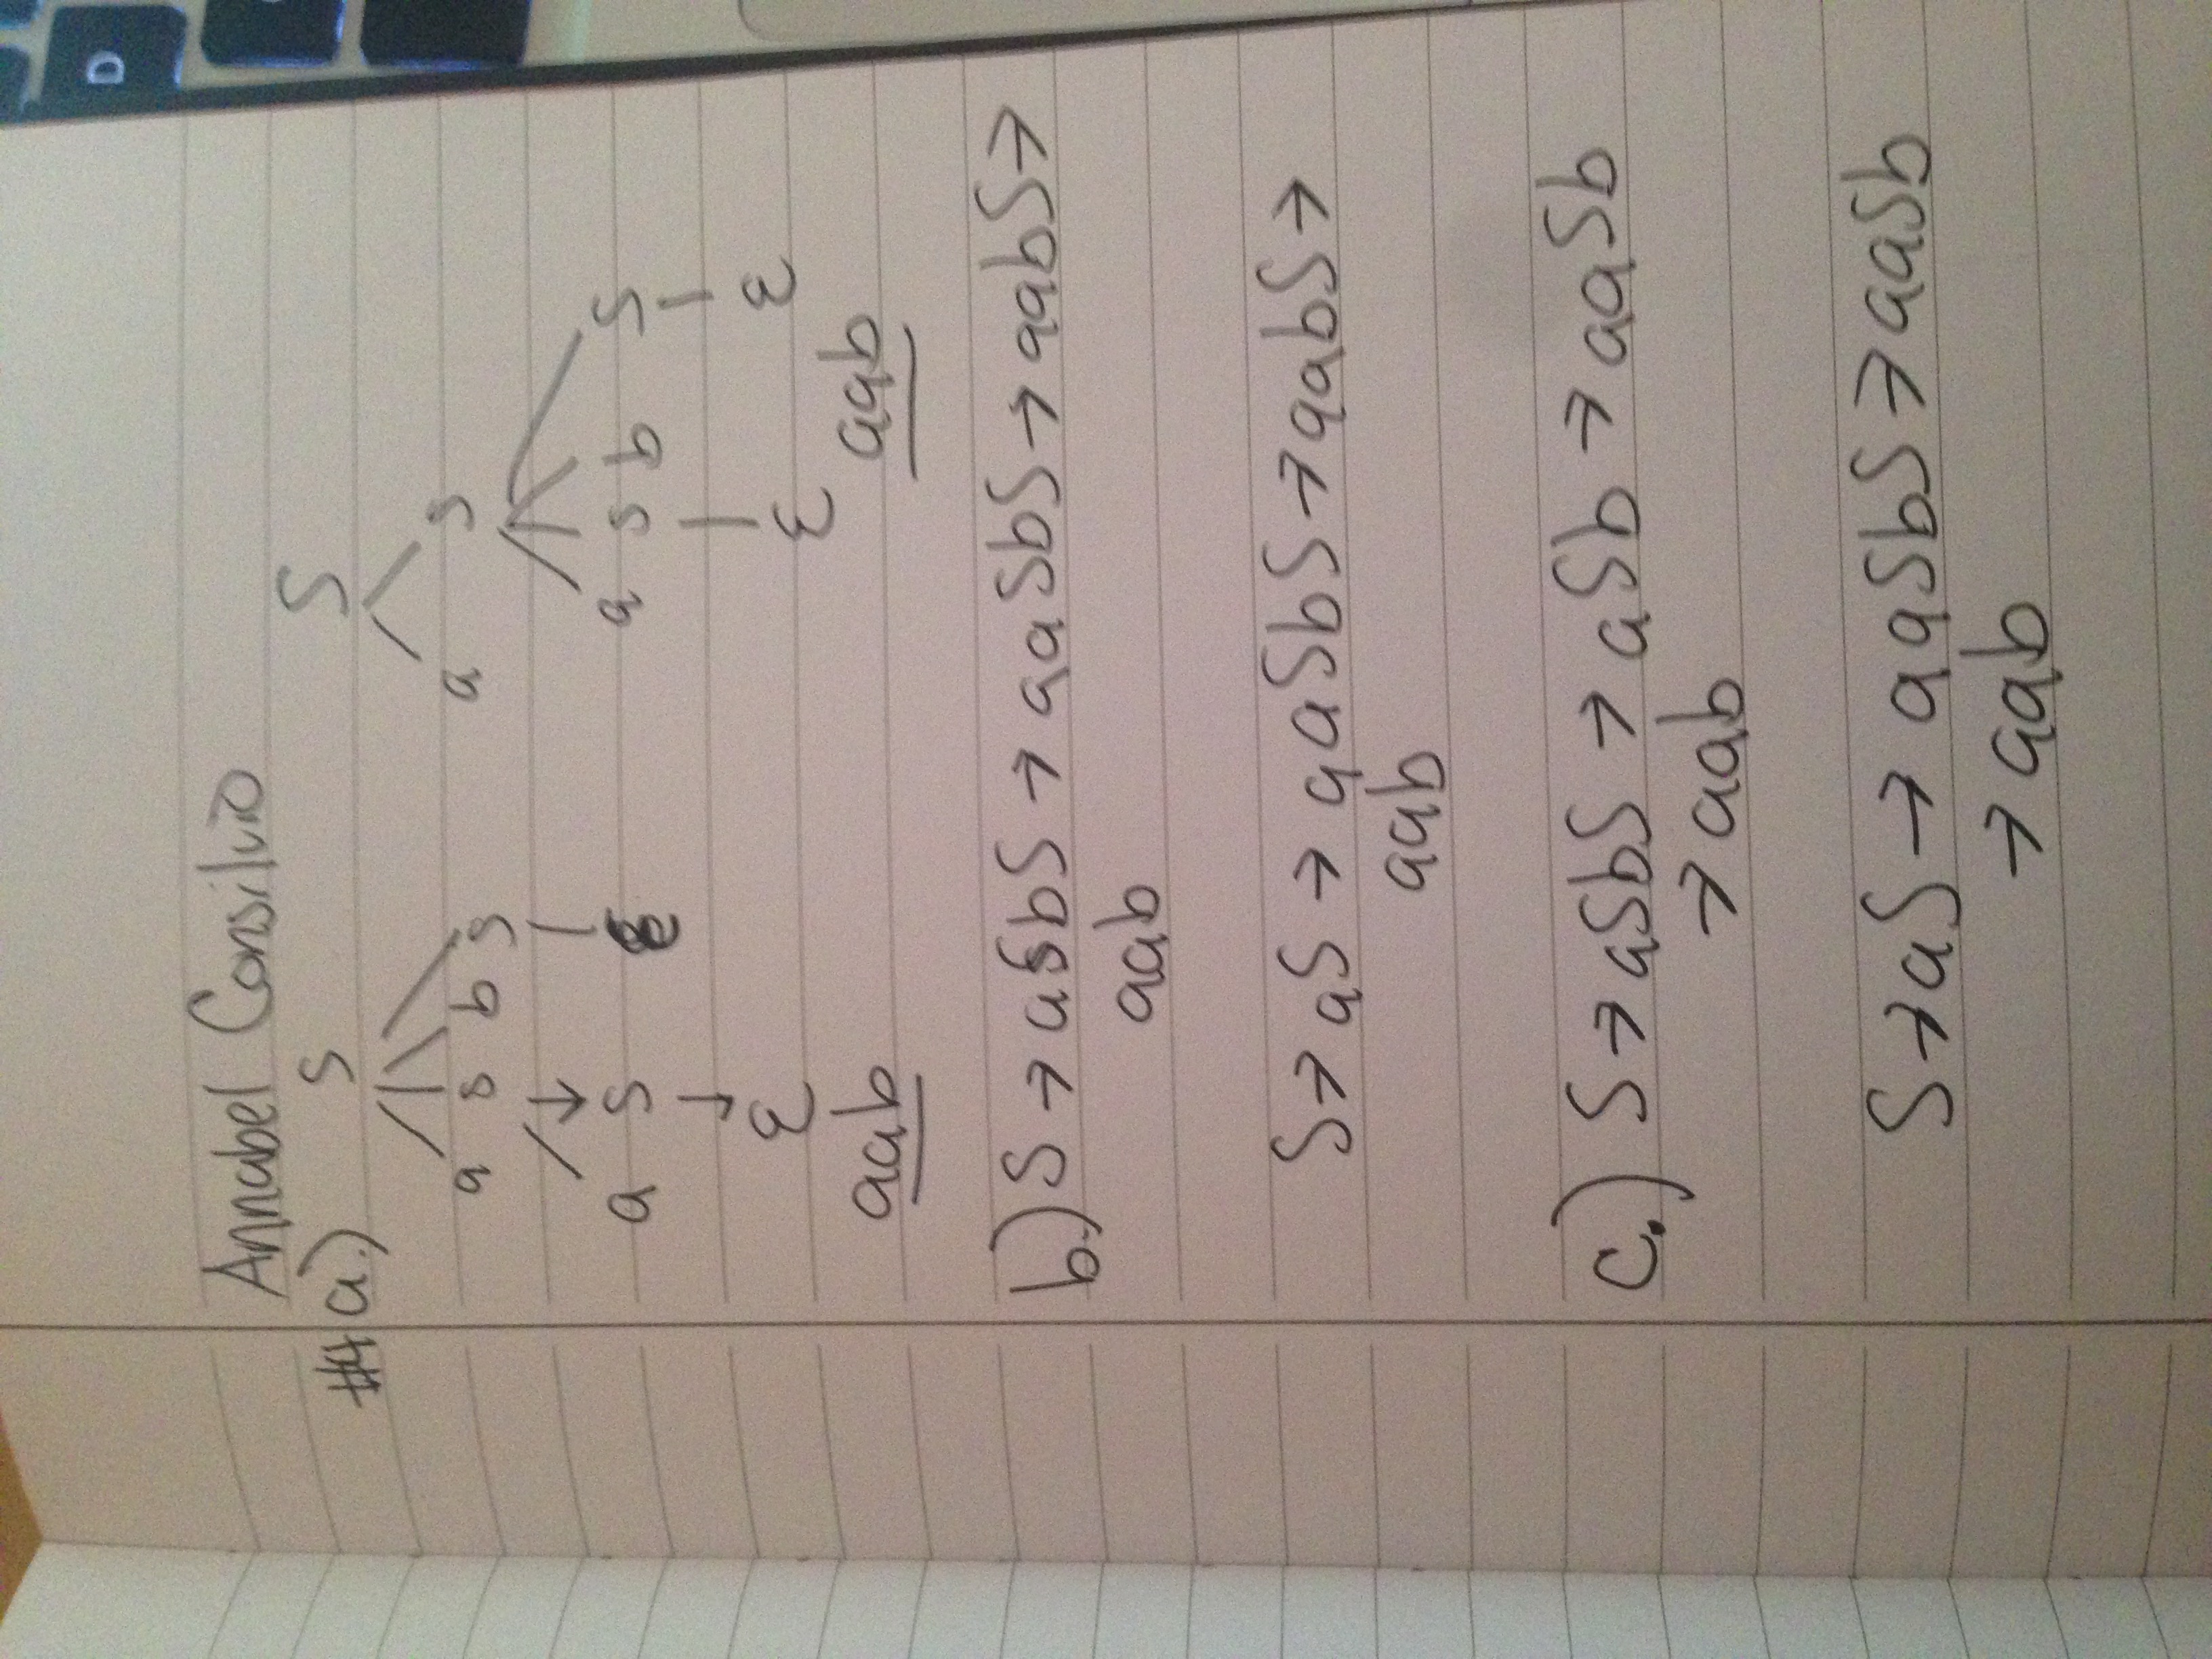 Annabel Consilvio
#4 a.) S S
a S b S a S
a S ε a S b S
ε ε ε
aab aab
b.) S → aSbS → aaSbS → aabS →
aab
S → aS → aaSbS → aabS →
aab
c.) S → aSbS → aSb → aaSb
→ aab
S → aS → aaSbS → aaSb
→ aab
D